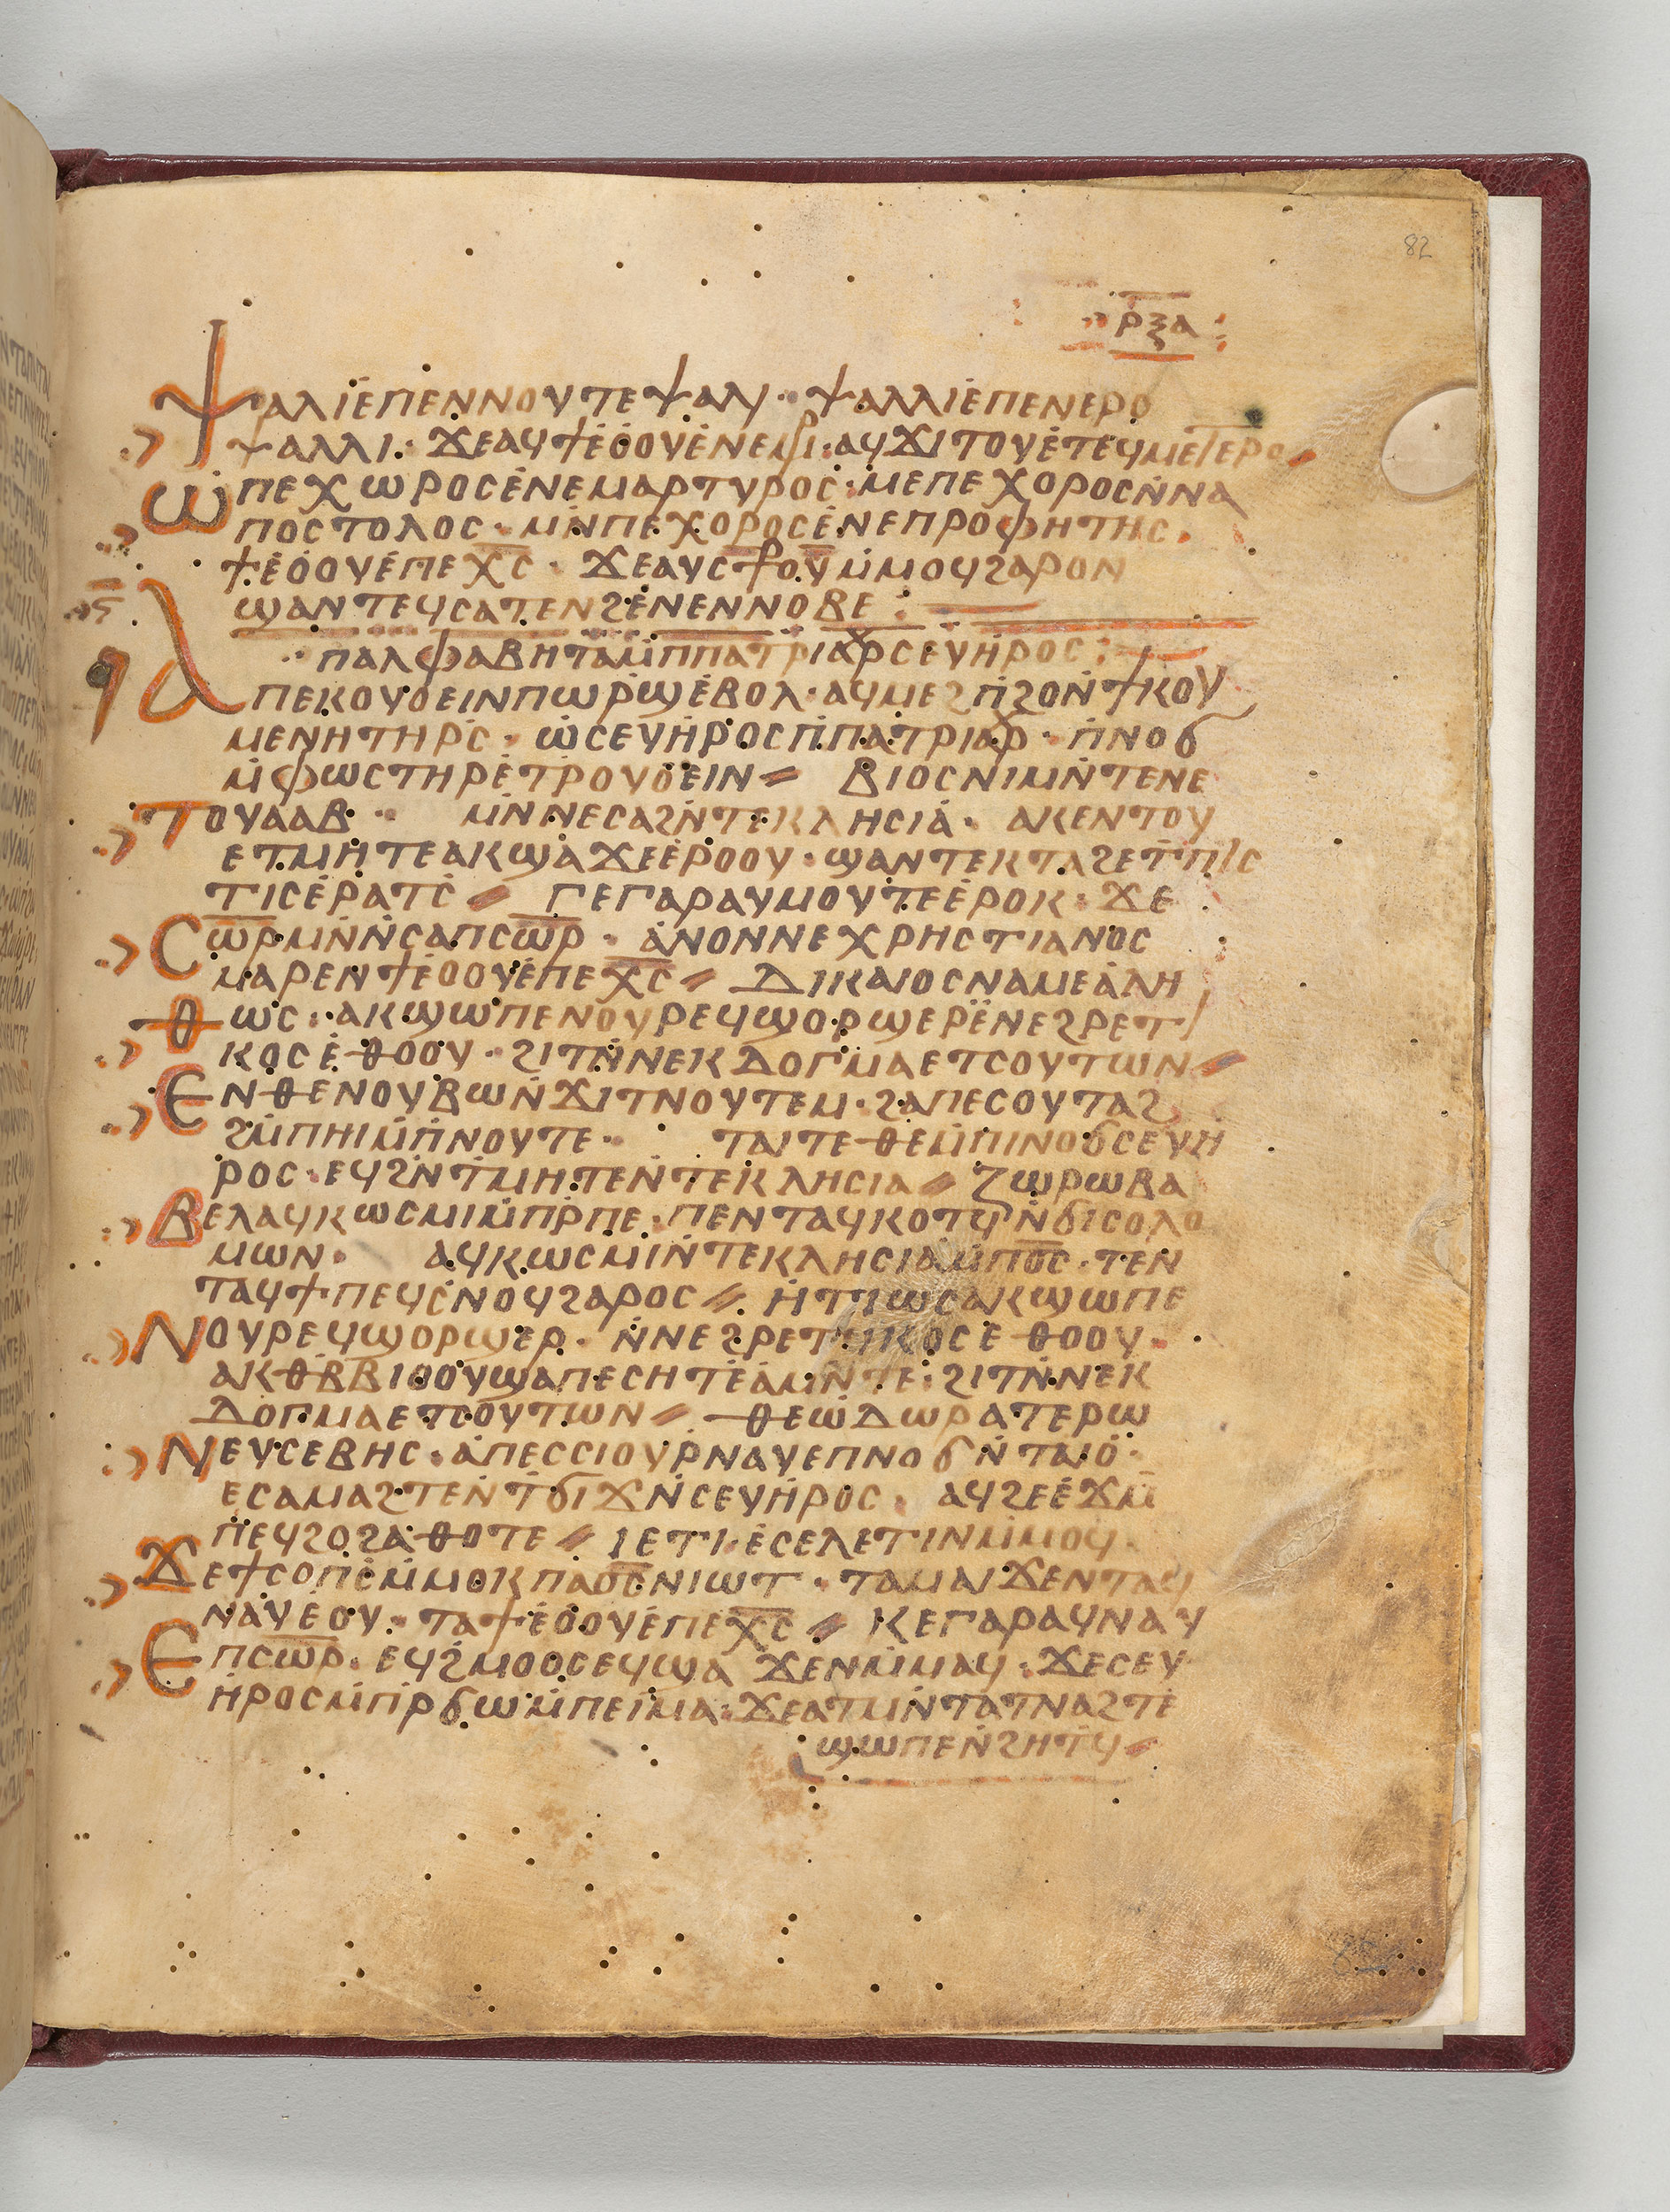 82
ⲣⲝⲁ
ⲯⲁⲗⲓⲉⲡⲉⲛⲛⲟⲩⲧⲉⲯⲁⲗⲓ · ⲯⲁⲗⲗⲓⲉⲡⲉⲛⲉⲣⲟ
ⲯⲁⲗⲗⲓ · ϫⲉⲁϥϯⲉⲟⲟⲩⲉⲛⲉϥ · ⲁϥϫⲓⲧⲟⲩⲉⲧⲉϥⲙⲉⲧⲉⲣⲟ
ⲱⲡⲉⲭⲱⲣⲟⲥⲉⲛⲉⲙⲁⲣⲧⲩⲣⲟⲥ · ⲙⲉⲡⲉⲭⲟⲣⲟⲥⲛⲛⲁ
ⲡⲟⲥⲧⲟⲗⲟⲥ · ⲙⲛⲡⲉⲭⲟⲣⲟⲥⲉⲛⲉⲡⲣⲟⲫⲏⲧⲏⲥ ·
ϯⲉⲟⲟⲩⲉⲡⲉⲭ̅ⲥ̅ · ϫⲉⲁⲩⲥϯⲟⲩⲙⲙⲟϥϩⲁⲣⲟⲛ
ϣⲁⲛⲧⲉϥⲥⲁⲧⲉⲛϩⲉⲛⲉⲛⲛⲟⲃⲉ :
ⲡⲁⲗⲫⲁⲃⲏⲧⲁⲙⲡⲡⲁⲧⲣⲓⲁⲣⲭⲥⲉⲩⲏⲣⲟⲥ :
ⲁⲡⲉⲕⲟⲩⲟⲉⲓⲛⲡⲱⲣϣⲉⲃⲟⲗ · ⲁϥⲙⲉϩⲡϩⲟⲛϯⲕⲟⲩ
ⲙⲉⲛⲏⲧⲏⲣⲥ · ⲱⲥⲉⲩⲏⲣⲟⲥⲡⲡⲁⲧⲣⲓⲁⲣⲭ · ⲡⲛⲟϭ
ⲙⲫⲱⲥⲧⲏⲣⲉⲧⲣⲟⲩⲟⲉⲓⲛ ⲃⲓⲟⲥⲛⲓⲙⲛⲧⲉⲛⲉ
ⲧⲟⲩⲁⲁⲃ · ⲙⲛⲛⲉⲥⲁϩⲛⲧⲉⲕⲗⲏⲥⲓⲁ · ⲁⲕⲉⲛⲧⲟⲩ
ⲉⲧⲙⲏⲧⲉⲁⲕϣⲁϫⲉⲉⲣⲟⲟⲩ · ϣⲁⲛⲧⲉⲕⲧⲁϩⲉⲧⲡⲓⲥ
ⲧⲓⲥⲉⲣⲁⲧⲥ ⲅⲉⲅⲁⲣⲁⲩⲙⲟⲩⲧⲉⲉⲣⲟⲕ · ϫⲉ
ⲥⲱ̅ⲣ̅ⲙⲛⲛⲥⲁⲡⲥⲱ̅ⲣ̅ · ⲁⲛⲟⲛⲛⲉⲭⲣⲏⲥⲧⲓⲁⲛⲟⲥ
ⲙⲁⲣⲉⲛϯⲉⲟⲟⲩⲉⲡⲉⲭ̅ⲥ̅ ⲇⲓⲕⲁⲓⲟⲥⲛⲁⲙⲉⲁⲗⲏ
ⲑⲱⲥ · ⲁⲕϣⲱⲡⲉⲛⲟⲩⲣⲉϥϣⲟⲣϣⲉⲣⲉⲛⲉϩⲣⲉⲧⲓ
ⲕⲟⲥⲉⲑⲟⲟⲩ · ϩⲓⲧⲛⲛⲉⲕⲇⲟⲅⲙⲁⲉⲧⲥⲟⲩⲧⲱⲛ
ⲉⲛⲑⲉⲛⲟⲩⲃⲱⲛϫⲓⲧⲛⲟⲩⲧⲉⲙ · ϩⲁⲡⲉⲥⲟⲩⲧⲁϩ
ϩⲙⲡⲏⲓⲙⲡⲛⲟⲩⲧⲉ · ⲧⲁⲓⲧⲉⲑⲉⲙⲡⲓⲛⲟϭⲥⲉⲩⲏ
ⲣⲟⲥ · ⲉϥϩⲛⲧⲙⲏⲧⲉⲛⲧⲉⲕⲗⲏⲥⲓⲁ ⲍⲱⲣⲱⲃⲁ
ⲃⲉⲗⲁϥⲕⲱⲥⲙⲓⲙⲡⲣⲡⲉ · ⲡⲉⲛⲧⲁϥⲕⲟⲧϥⲛϭⲓⲥⲟⲗⲟ
ⲙⲱⲛ · ⲁϥⲕⲱⲥⲙⲓⲛⲧⲉⲕⲗⲏⲥⲓⲁⲙⲡⲟ̅ⲥ̅ · ⲧⲉⲛ
ⲧⲁϥϯⲡⲉϥⲥⲛⲟϥϩⲁⲣⲟⲥ ⲏⲧⲓⲱⲥⲁⲕϣⲱⲡⲉ
ⲛⲟⲩⲣⲉϥϣⲟⲣϣⲉⲣ · ⲛⲛⲉϩⲣⲉⲧⲏⲕⲟⲥⲉⲑⲟⲟⲩ ·
ⲁⲕⲑⲃⲃⲓⲟⲟⲩϣⲁⲡⲉⲥⲏⲧⲉⲁⲙⲛⲧⲉ · ϩⲓⲧⲛⲛⲉⲕ
ⲇⲟⲅⲙⲁⲉⲧⲥⲟⲩⲧⲱⲛ ⲑⲉⲱⲇⲱⲣⲁⲧⲉⲣⲣⲱ
ⲛⲉⲩⲥⲉⲃⲏⲥ · ⲁⲡⲉⲥⲥⲓⲟⲩⲣⲛⲁⲩⲉⲡⲛⲟϭⲛⲧⲁⲓⲟ ·
ⲉⲥⲁⲙⲁϩⲧⲉⲛⲧϭⲓϫⲛⲥⲉⲩⲏⲣⲟⲥ · ⲁϥϩⲉⲉϫⲙ
ⲡⲉϥϩⲟϩⲁⲑⲟⲧⲉ ⲓⲉⲧⲓⲉⲥⲉⲗⲉⲧⲓⲛⲙⲙⲟϥ ·
ϫⲉϯⲥⲟⲡⲥⲙⲙⲟⲕⲡⲁⲟ̅ⲥ̅ⲛⲓⲱⲧ · ⲧⲁⲙⲁⲓϫⲉⲛⲧⲁϥ
ⲛⲁⲩⲉⲟⲩ · ⲧⲁϯⲉⲟⲟⲩⲉⲡⲉⲭ̅ⲥ̅ ⲕⲉⲅⲁⲣⲁϥⲛⲁⲩ
ⲉⲡⲥⲱ̅ⲣ̅ · ⲉϥϩⲙⲟⲟⲥⲉϥϣⲁϫⲉⲛⲙⲙⲁϥ · ϫⲉⲥⲉⲩ
ⲏⲣⲟⲥⲙⲡⲣϭⲱⲙⲡⲉⲓⲙⲁ · ϫⲉⲁⲧⲙⲛⲧⲁⲧⲛⲁϩⲧⲉ
ϣⲱⲡⲉⲛϩⲏⲧϥ